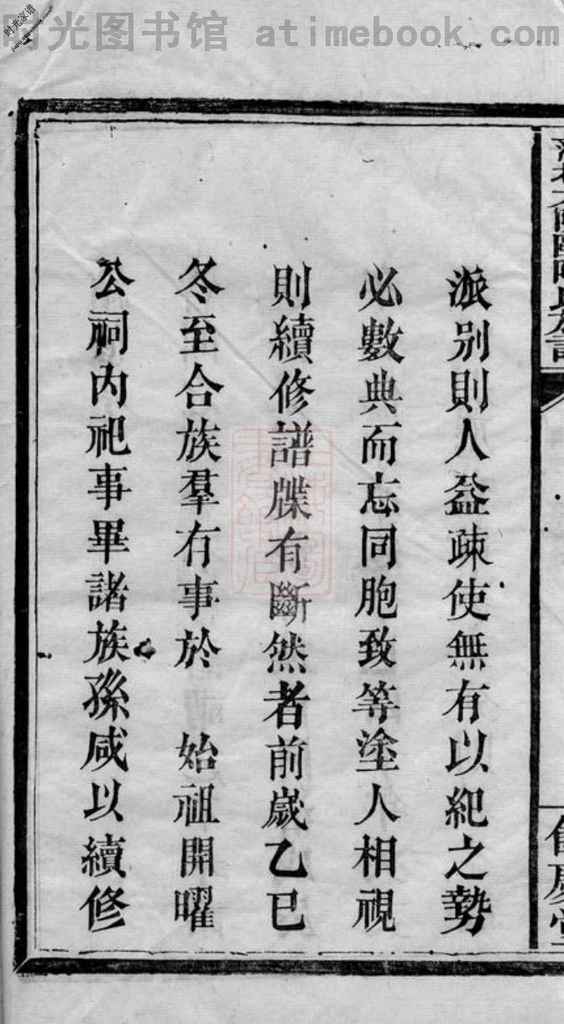 时光图书馆 atimebook.com
派别則人益疎使無有以紀之勢
必數典而忘同胞致等塗人相視
則續修譜牒有斷然者前歲乙巳
冬至合族羣有事於 始祖開曜
公祠內祀事畢諸族孫咸以續修